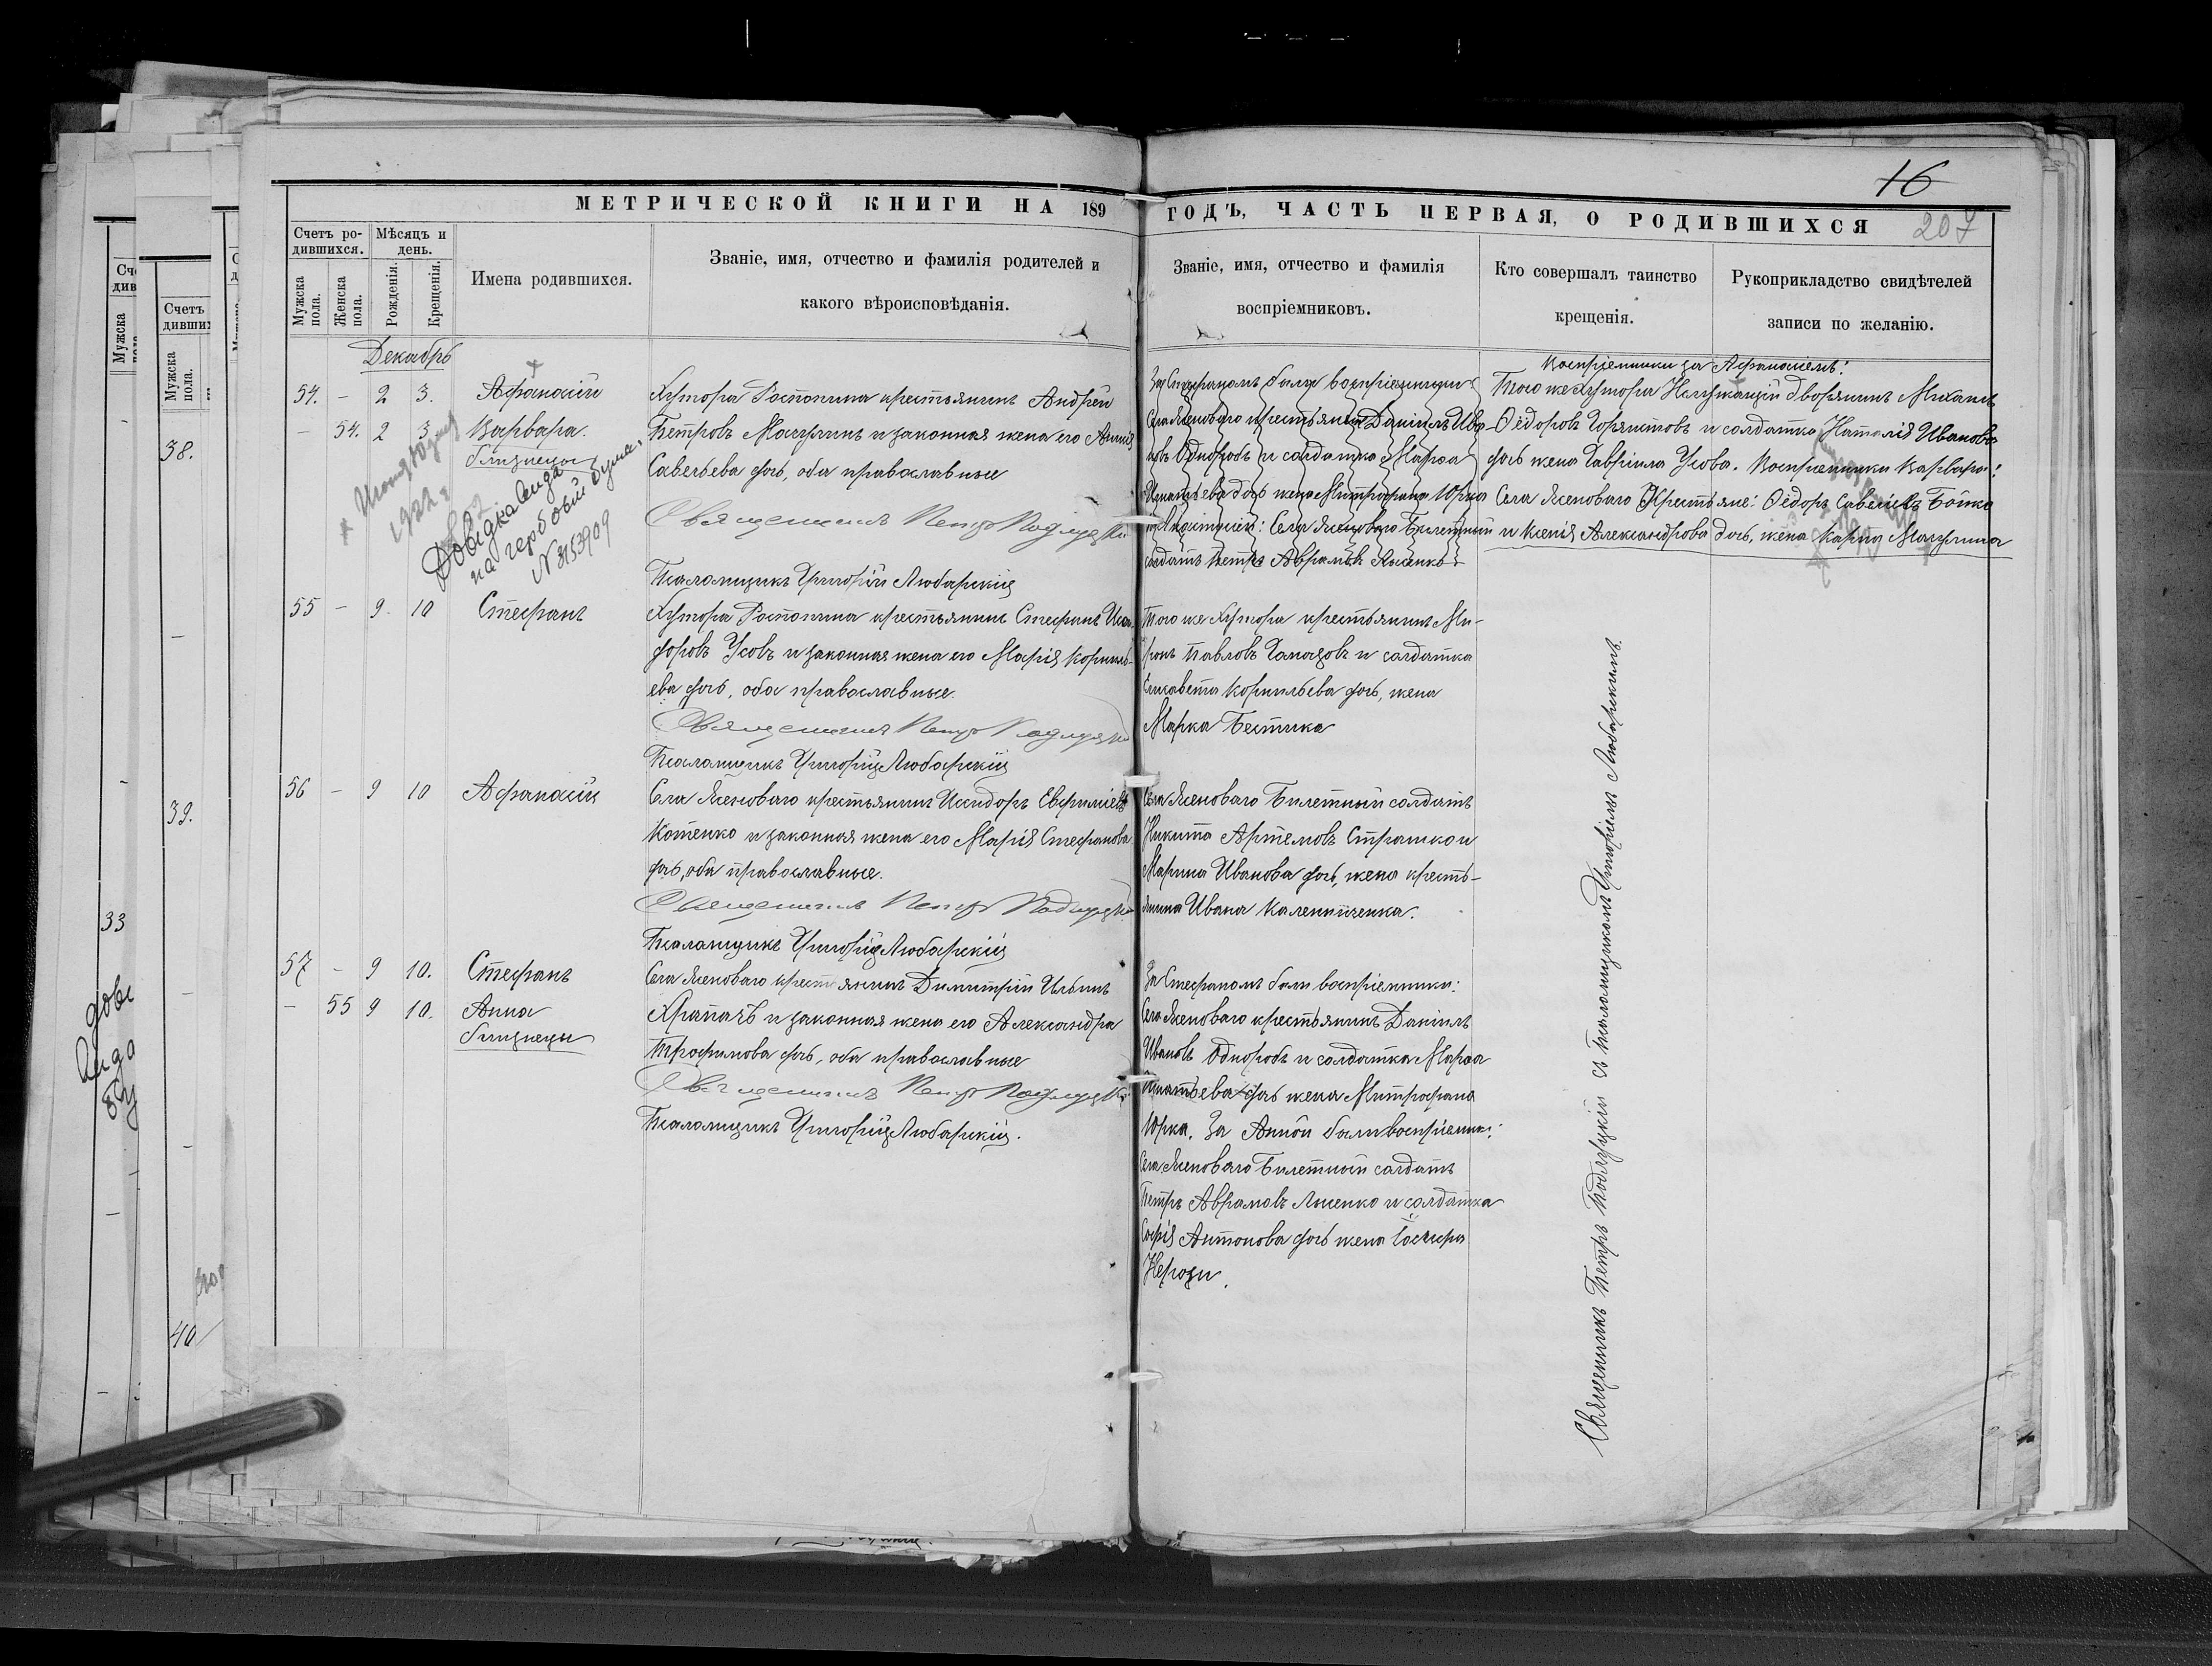 16
207
МЕТРИЧЕСКОЙ КНИГИ НА 189 ГОДЪ, ЧАСТЬ ПЕРВАЯ, О РОДИВШИХСЯ
Счетъ ро-
дившихся.
Мужска пола.
Женска пола.
Мѣсяцъ и
день.
Рожденія.
Крещенія.
Имена родившихся.
Званіе, имя, отчество и фамилія родителей и
какого вѣроисповѣданія.
Званіе, имя, отчество и фамилія
воспріемниковъ.
Кто совершалъ таинство
крещенія.
Рукоприкладство свидѣтелей
записи по желанію.
Декабрь
54. - 2 3. Афанасій
- 54. 2 3 Варвара.
близнецы
1922
Довідка видана
на гербовый бумагѣ
N 3153909
Хутора Ростопина крестьянинъ Андрей
Петровъ Мацулинъ и законная жена его Анна
Савельева дочь, оба православные
Священникъ Петръ Подлуцкій
Псаломщикъ Григорій Любарскій
За Стефаномъ были воспріемники:
Села Ясеноваго крестьянинъ Даніилъ Ива-
новъ Однорогъ и солдатка Марѳа
Игнатьева дочь жена Митрофана Юрка
Села Ясеноваго Билетный
солдатъ Петръ Авраамовъ Лысенко
Воспріемники за Афанасіемъ:
Того же хутора Неслужащій дворянинъ Михаилъ
Ѳедоровъ и солдатка Наталія Иванова
дочь жена Гавріила Усова. Воспріемники Варвары:
Села Ясеноваго Крестьяне: Ѳедоръ Савельевъ Бойко
и Ксенія Александрова дочь, жена Карпа Мацулина
55 - 9. 10 Стефанъ
Хутора Ростопина крестьянинъ Стефанъ Иси-
доровъ Усовъ и законная жена его Марія Корниль-
ева дочь, оба православные.
Священникъ Петръ Подлуцкій
Псаломщикъ Григорій Любарскій
Того же хутора крестьянинъ Ми-
ронъ Павловъ и солдатка
Елисавета Корнильева дочь, жена
Марка Бестика
56 - 9 10 Афанасій
Села Ясеноваго крестьянинъ Исидоръ Евфиміевъ
Котенко и законная жена его Марія Стефанова
дочь, оба православные.
Священникъ Петръ Подлуцкій
Псаломщикъ Григорій Любарскій
Села Ясеноваго Билетный солдатъ
Никита Артемовъ Страшко и
Марина Иванова дочь, жена кресть-
янина Ивана Калениченка.
57 - 9 10. Стефанъ
- 55 9 10. Анна
близнецы
Села Ясеноваго крестьянинъ Димитрій Ильинъ
Храпачъ и законная жена его Александра
Трофимова дочь, оба православные
Священникъ Петръ Подлуцкій
Псаломщикъ Григорій Любарскій.
За Стефаномъ были воспріемники:
Села Ясеноваго крестьянинъ Даніилъ
Ивановъ Однорогъ и солдатка Марѳа
Игнатьева дочь жена Митрофана
Юрка. За Анной были воспріемник:
Села Ясеноваго Билетный солдатъ
Петръ Авраамовъ Лысенко и солдатка
Софія Антонова дочь жена
Священникъ Петръ Подлуцкій съ псаломщикомъ Григоріемъ Любарскимъ.
Счетъ
Мужска
пола.
38.
39.
40
33